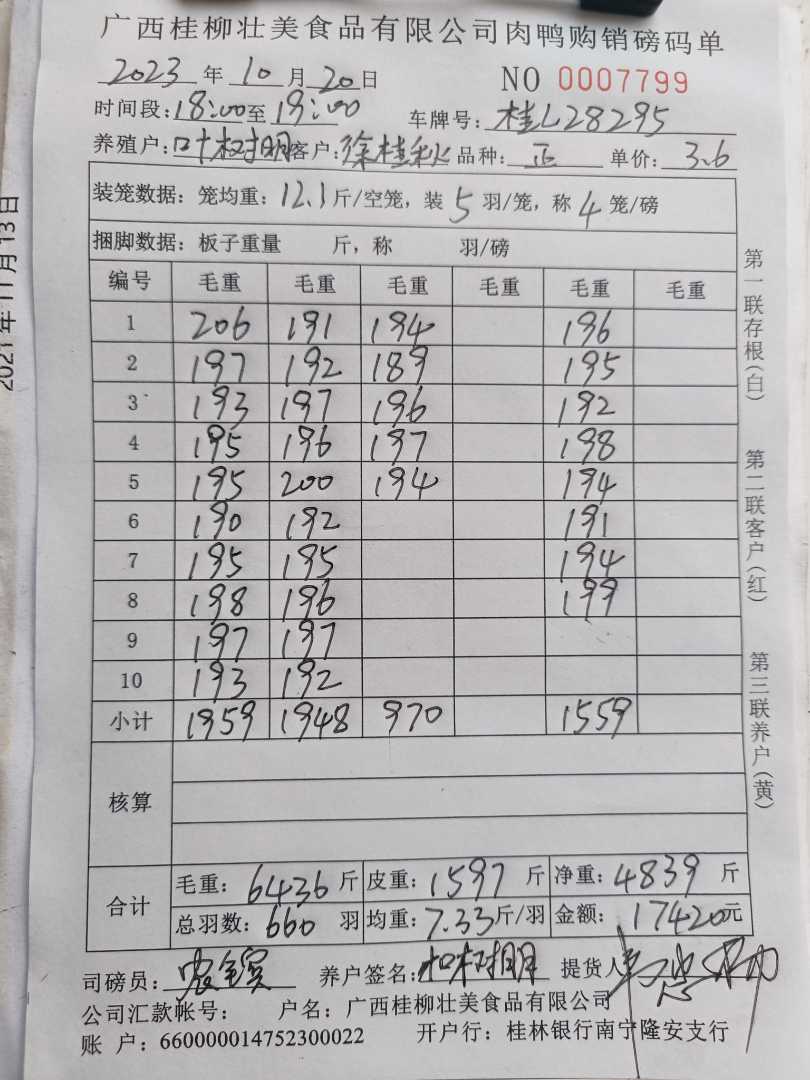 广西桂柳壮美食品有限公司肉鸭购销磅码单
2023 年 10 月 20 日 NO 0007799
时间段: 18:00 至 19:00 车牌号: 桂L28295
养殖户: 叶权明 客户: 徐桂秋 品种: 正 单价: 3.6
装笼数据: 笼均重: 12.1 斤/空笼, 装 5 羽/笼, 称 4 笼/磅
捆脚数据: 板子重量 斤, 称 羽/磅
编号 毛重 毛重 毛重 毛重 毛重 毛重
1 206 191 194 196
2 197 192 189 195
3 193 197 196 192
4 195 196 197 198
5 195 200 194 194
6 190 192 191
7 195 195 194
8 198 196 199
9 197 197
10 193 192
小计 1959 1948 970 1559
核算
合计 毛重: 6436 斤 皮重: 1597 斤 净重: 4839 斤
总羽数: 660 羽 均重: 7.33 斤/羽 金额: 17420 元
司磅员: 养户签名: 提货人
公司汇款帐号: 户名: 广西桂柳壮美食品有限公司
账 户: 660000014752300022 开户行: 桂林银行南宁隆安支行
第一联存根(白)
第二联客户(红)
第三联养户(黄)
2021年11月13日